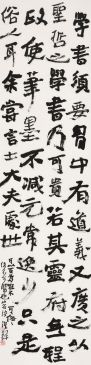 學書須要胸中有道義又廣之以
聖哲之學書乃可貴若其靈府無程
政使筆墨不減元常逸少只是
俗人耳余嘗言士大夫處世